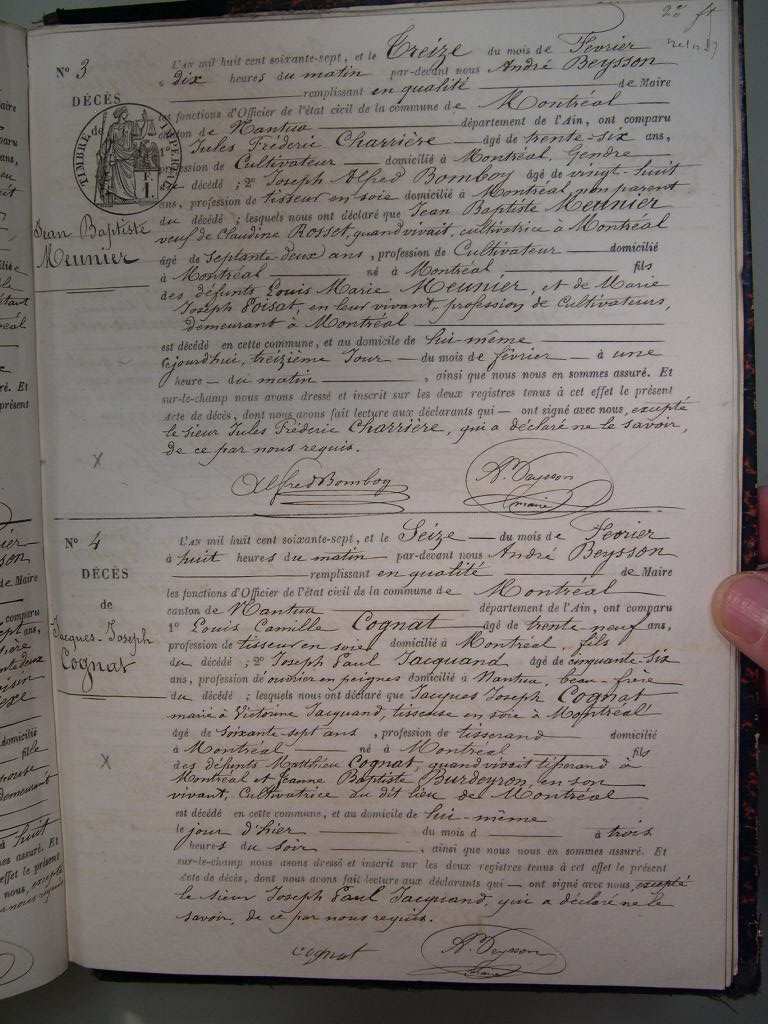 22 ft
N° 3
DÉCÈS
TIMBRE IMPERIAL
1 F.
Jean Baptiste
Meunier
L'AN mil huit cent soixante-sept, et le Treize du mois de Fevrier
à dix heures du matin par-devant nous André Beysson
remplissant en qualité de Maire
les fonctions d'Officier de l'état civil de la commune de Montréal
canton de Nantua département de l'Ain, ont comparu
1° Jules Fréderic Charrière âgé de trente-six ans,
profession de Cultivateur domicilié à Montréal, Gendre
du décédé ; 2° Joseph Alfred Bomboy âgé de vingt-huit
ans, profession de tisseur en soie domicilié à Montréal, non parent
du décédé ; lesquels nous ont déclaré que Jean Baptiste Meunier
veuf de Claudine Rosset, quand vivait, cultivatrice à Montréal
âgé de Septante deux ans, profession de Cultivateur domicilié
à Montréal né à Montréal fils
des défunts Louis Marie Meunier, et de Marie
Joseph Poisat, en leur vivant, profession de Cultivateurs,
demeurant à Montréal
est décédé en cette commune, et au domicile de lui-même
cejourdhui, treizième Jour du mois de février à une
heure du matin, ainsi que nous nous en sommes assuré. Et
sur-le-champ nous avons dressé et inscrit sur les deux registres tenus à cet effet le présent
Acte de décès, dont nous avons fait lecture aux déclarants qui ont signé avec nous, excepté
le sieur Jules Fréderic Charrière, qui a déclaré ne le savoir,
de ce par nous requis.
X
Alfred Bomboy A. Beysson
maire
N° 4
DÉCÈS
de
Jacques-Joseph
Cognat
L'AN mil huit cent soixante-sept, et le Seize du mois de Fevrier
à huit heures du matin par-devant nous André Beysson
remplissant en qualité de Maire
les fonctions d'Officier de l'état civil de la commune de Montréal
canton de Nantua département de l'Ain, ont comparu
1° Louis Camille Cognat âgé de trente neuf ans,
profession de tisseur en soie domicilié à Montréal, fils
du décédé ; 2° Joseph Paul Jacquand âgé de cinquante-Six
ans, profession de ouvrier en peignes domicilié à Nantua, beau-frère
du décédé ; lesquels nous ont déclaré que Jacques Joseph Cognat
marié à Victorine Jacquand, tisseuse en soie à Montréal
âgé de Soixante-sept ans, profession de tisserand domicilié
à Montréal né à Montréal fils
des défunts Matthieu Cognat, quand vivait tisserand à
Montréal et Jeanne Baptiste Burdeyron, en son
vivant, Cultivatrice au dit lieu de Montréal
est décédé en cette commune, et au domicile de lui-même
le jour d'hier du mois d à trois
heures du soir, ainsi que nous nous en sommes assuré. Et
sur-le-champ nous avons dressé et inscrit sur les deux registres tenus à cet effet le présent
Acte de décès, dont nous avons fait lecture aux déclarants qui ont signé avec nous, excepté
le sieur Joseph Paul Jacquand, qui a déclaré ne le
savoir, de ce par nous requis.
X
cognat A. Beysson
maire